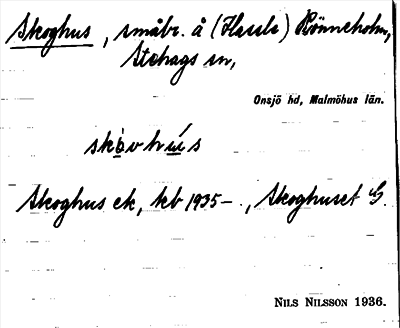 Skoghus, småbr. å (Hassle) Rönneholm,
Stehags sn,
Onsjö hd, Malmöhus län.
skòvhús
Skoghus ek, kb 1935–., Skoghuset G.
NILS NILSSON 1936.